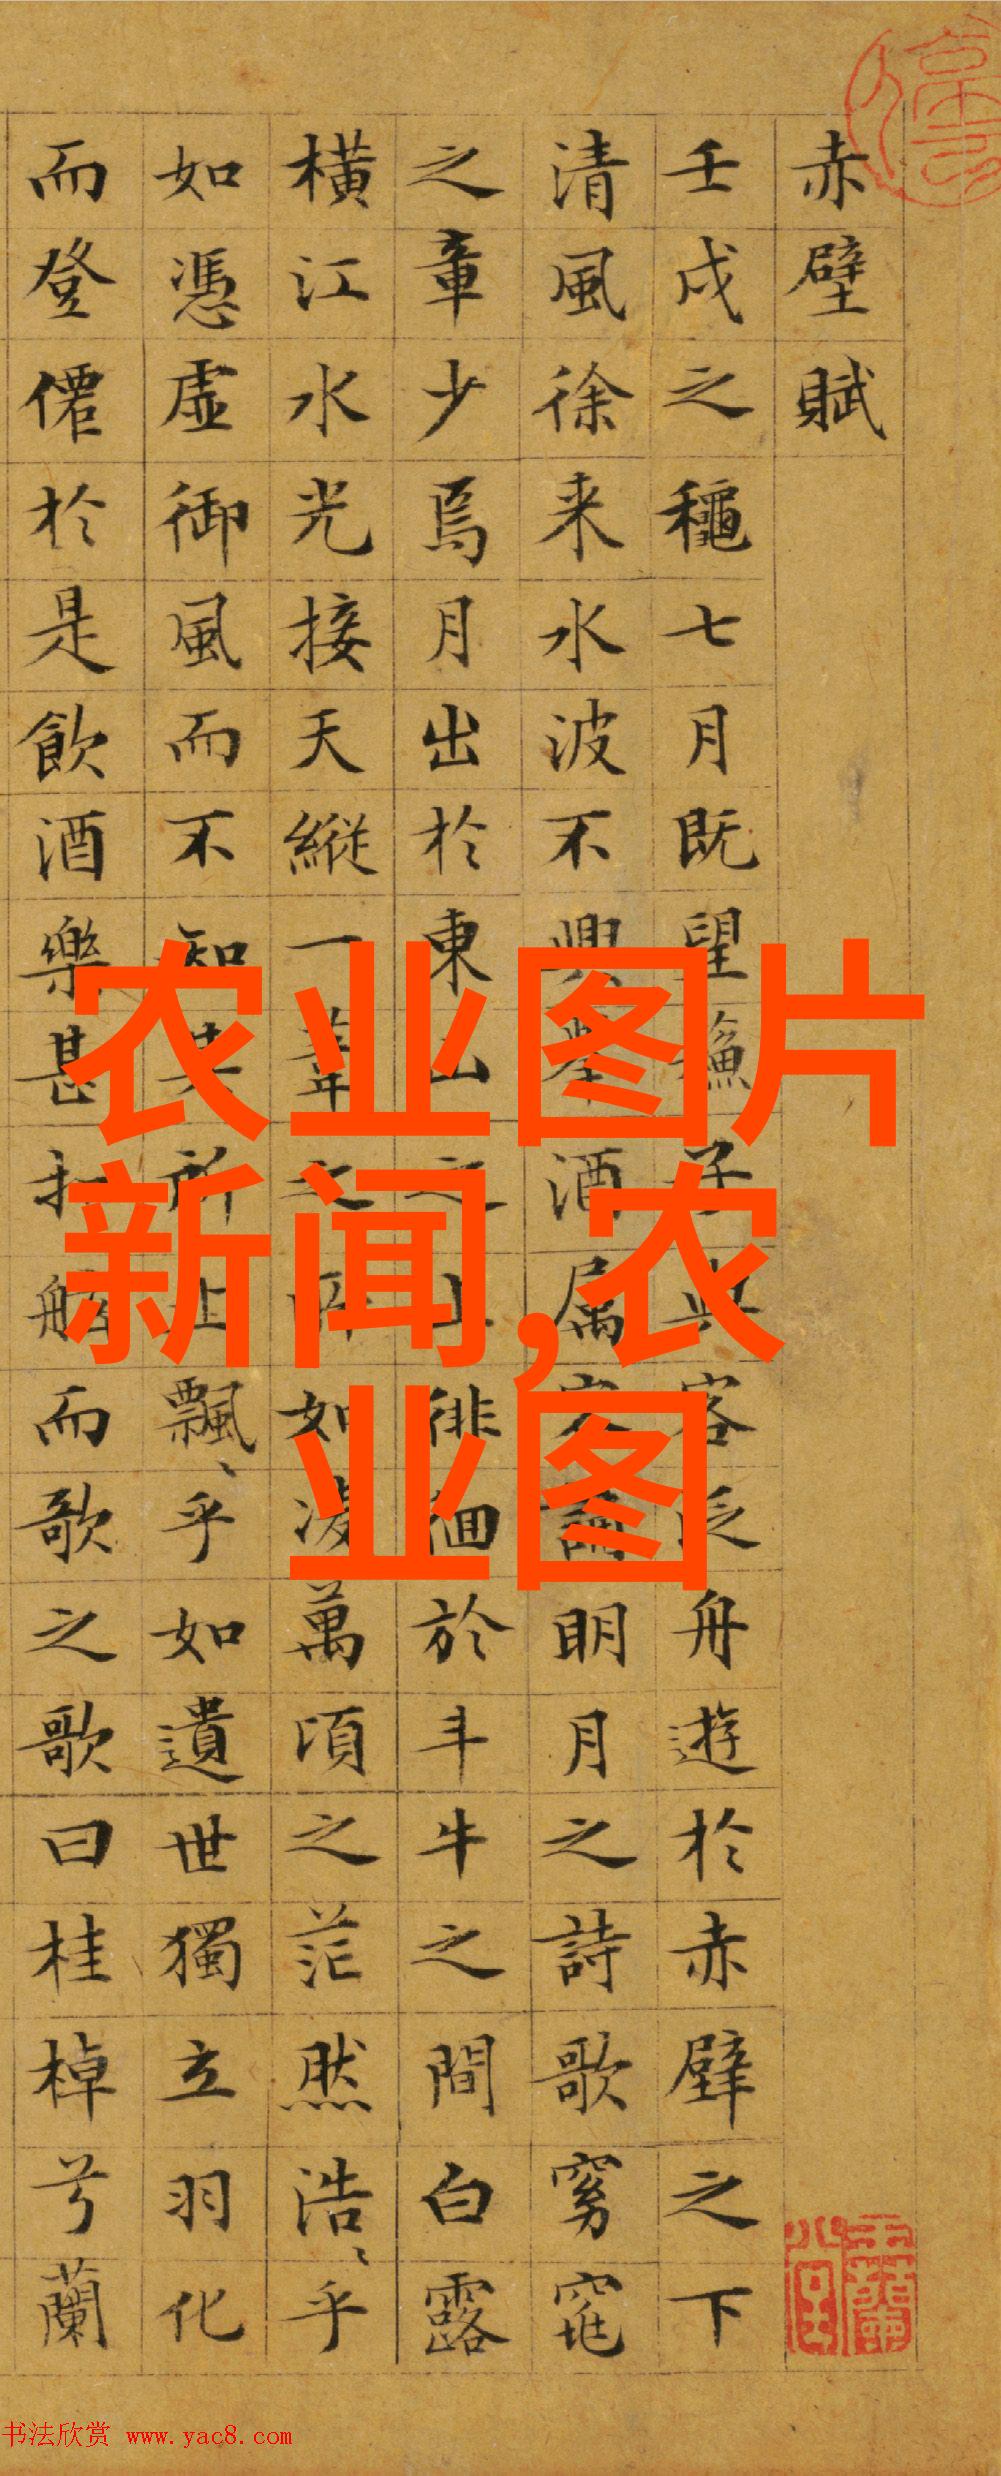 赤壁賦
壬戌之龝七月既望蘓子與客泛舟遊於赤壁之下
清風徐来水波不興舉酒属客誦明月之詩歌窈窕
之章少焉月出於東山之上徘徊於斗牛之間白露
橫江水光接天縱一葦之所如凌萬頃之茫然浩〻乎
如憑虛御風而不知其所止飄〻乎如遺世獨立羽化
而登僊於是飲酒樂甚扣舷而歌之歌曰桂棹兮蘭
农业图片
新闻,农
业图
书法欣赏 www.yac8.com